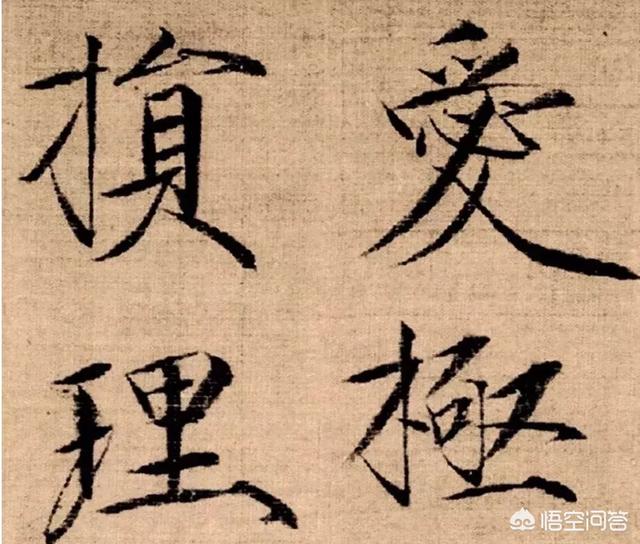 愛極
損理
悟空问答